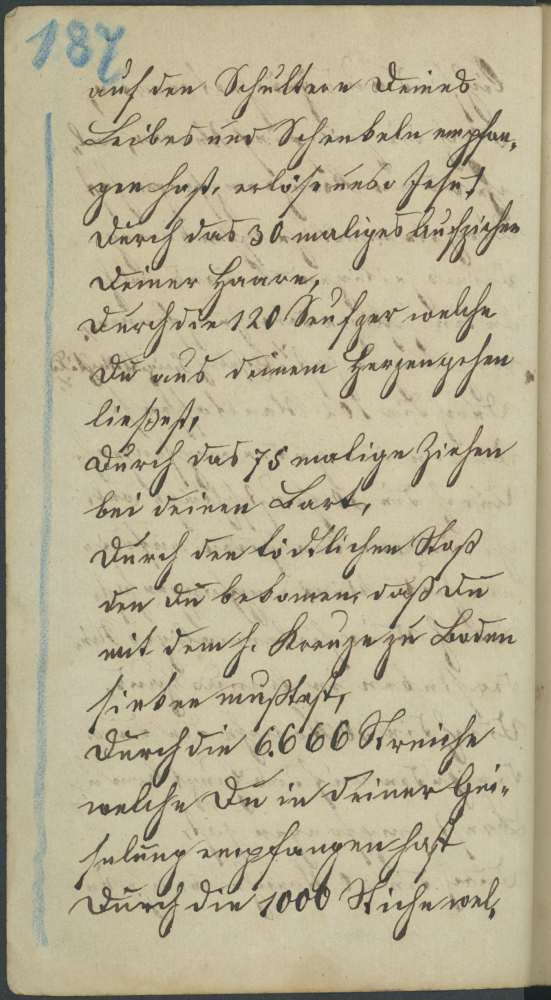 187
auf den Schultern Deines
Leibes und Schenkeln empfan-
gen hast, erlöse uns o Jesu!
Durch das 30 maliges Aufziehen
Deiner Haare,
Durch die 120 Seufzer welche
Du aus deinem Herzen gehen
ließest,
Durch das 75 malige Ziehen
bei deinen Bart,
Durch den tödtlichen Stoß
den du bekomen, daß Du
mit dem h. Kreuze zu Boden
sinken mußtest,
Durch die 6.666 Streiche
welche Du in Deiner Gei-
selung empfangen hast
Durch die 1000 Stiche wel-